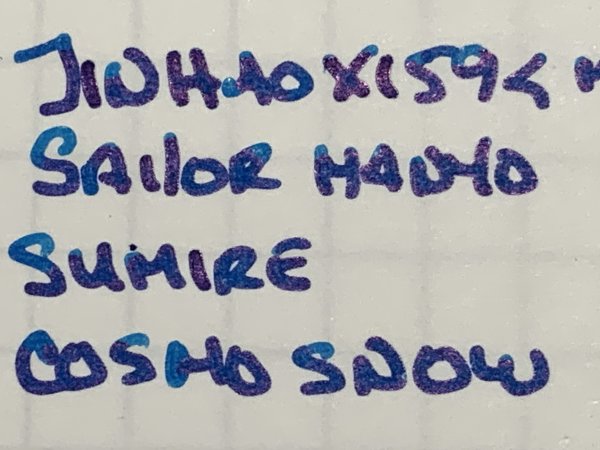 JINHAO X159 <
SAILOR MANYO
SUMIRE
COSMO SNOW